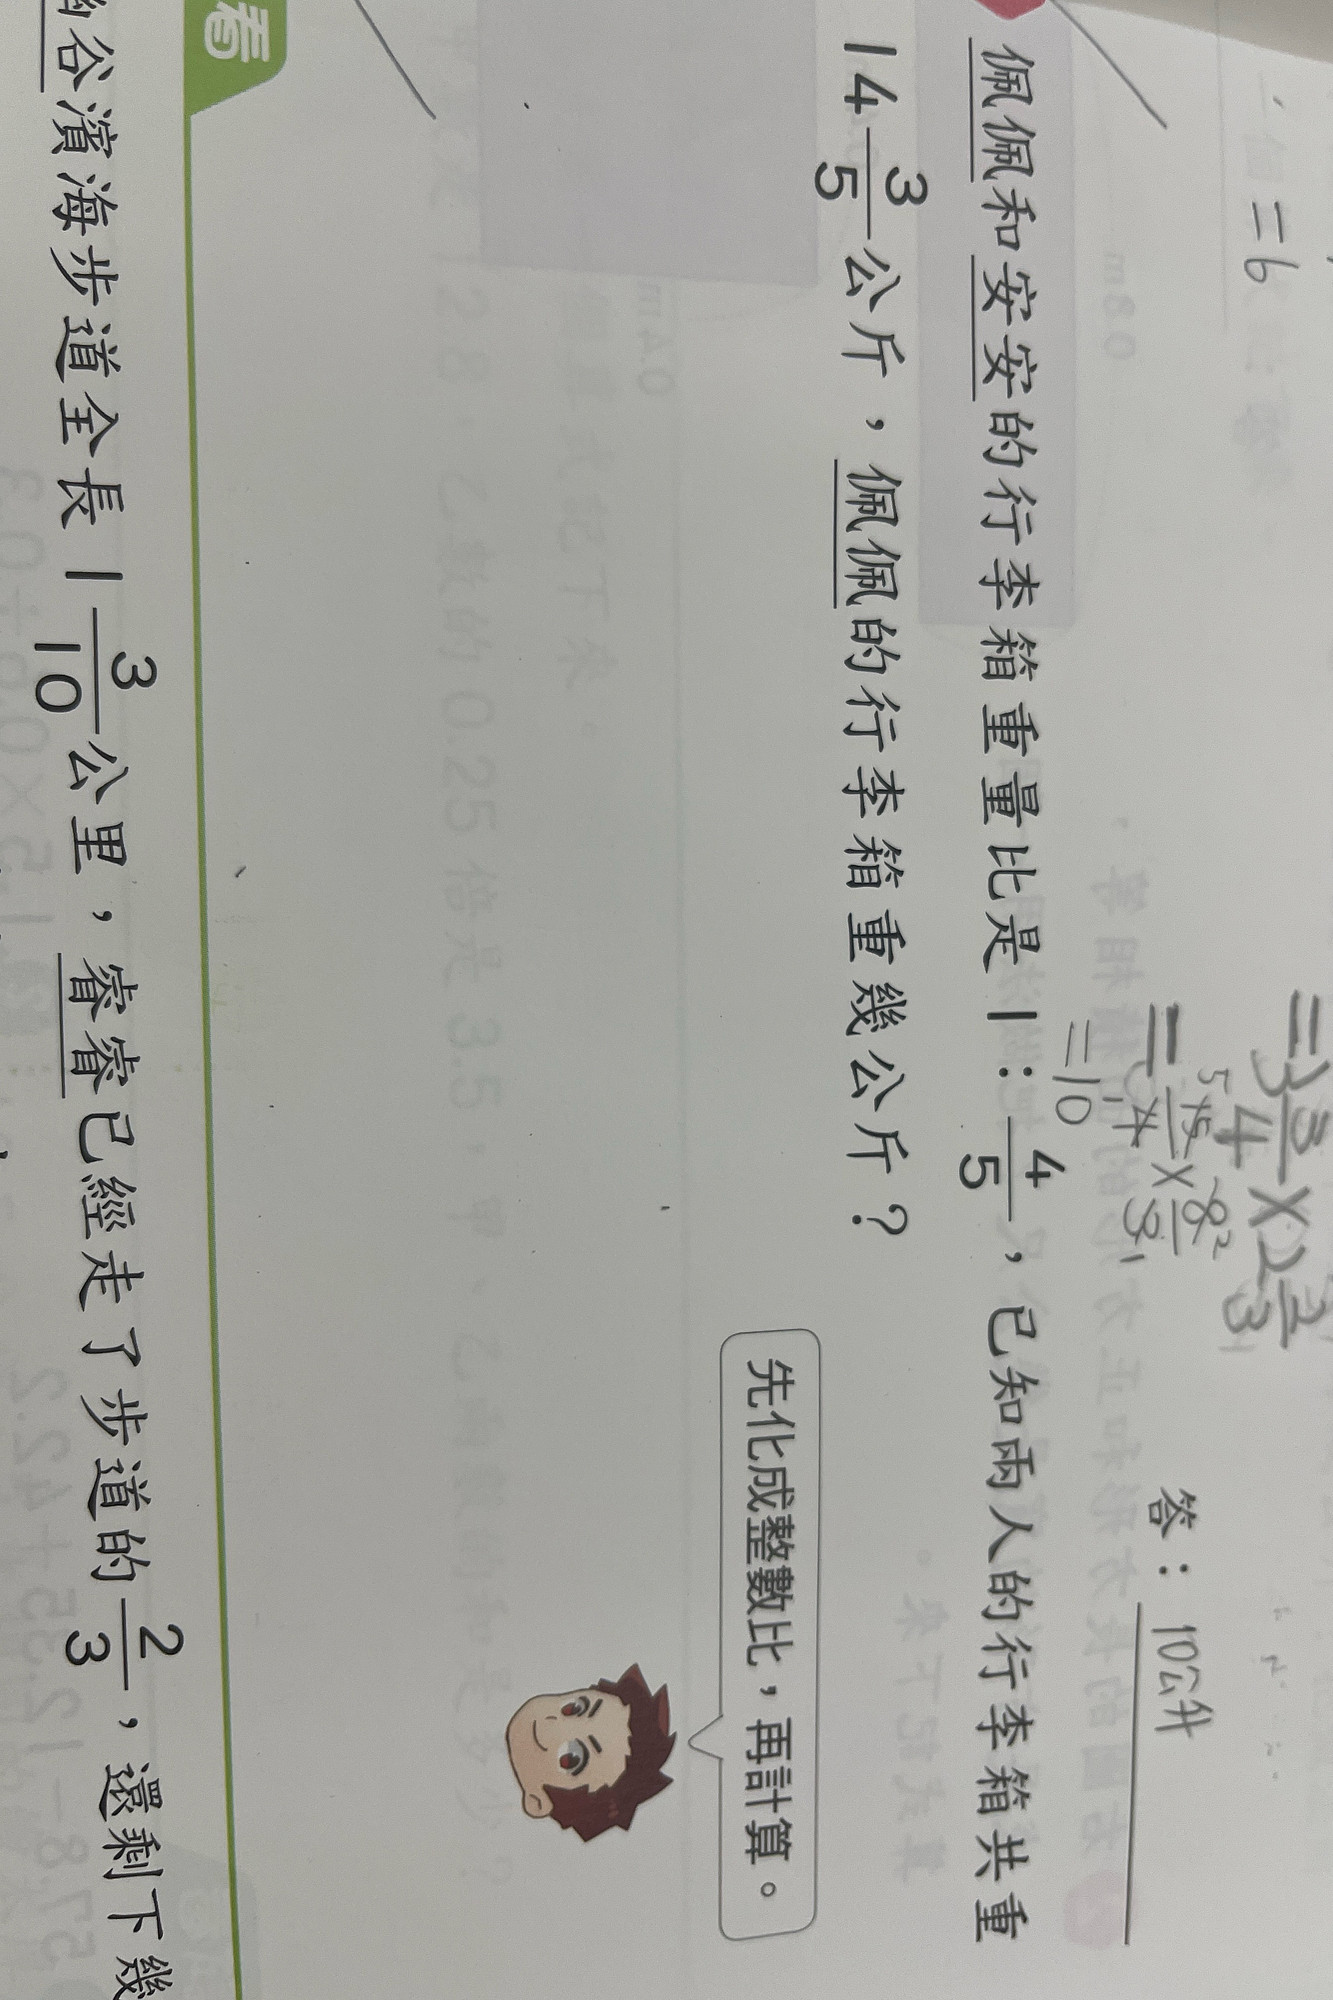 =6
=3 3/4 × 2 2/3
= 15/4 × 8/3
5 2
1 1
=10
答：10公升
佩佩和安安的行李箱重量比是 1：4/5，已知兩人的行李箱共重
14 3/5 公斤，佩佩的行李箱重幾公斤？
先化成整數比，再計算。
看
谷濱海步道全長 1 3/10 公里，睿睿已經走了步道的 2/3，還剩下幾